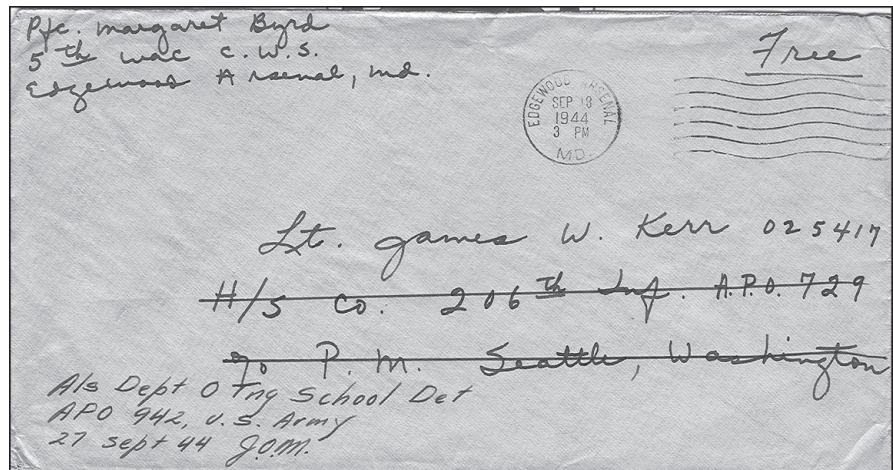 Pfc. Margaret Byrd
5th Wac C.W.S.
Edgewood Arsenal, Md.
Free
EDGEWOOD ARSENAL
SEP 13
1944
3 PM
MD.
Lt. James W. Kerr 025417
H/S Co. 206th Inf. A.P.O. 729
℅ P.M. Seattle, Washington
Als Dept O Tng School Det
APO 942, U.S. Army
27 Sept 44 J.O.M.